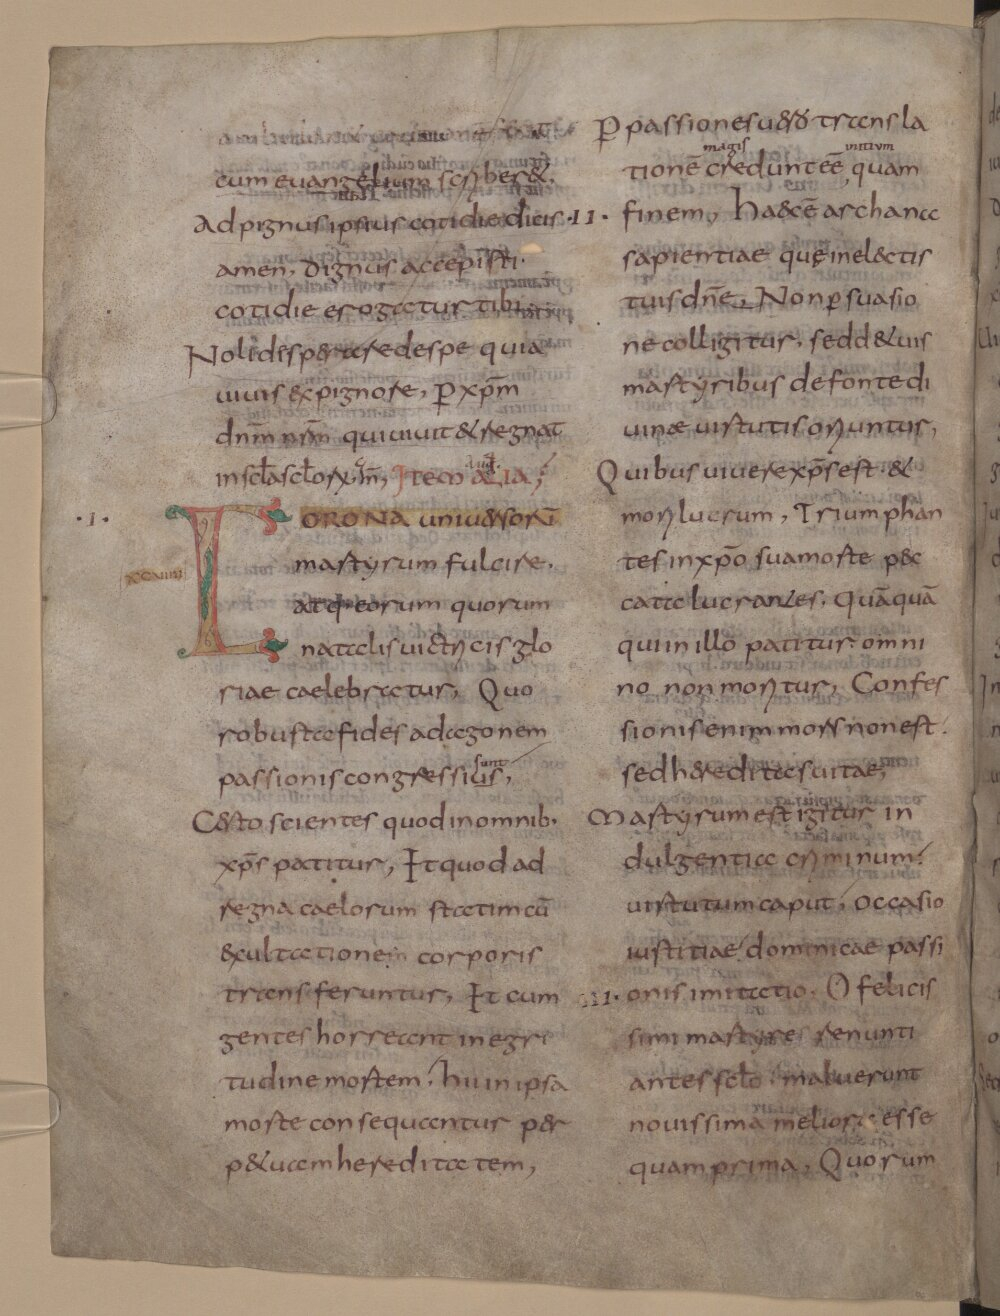 cum euangelium scriberet.
Ad pignus ipsius cotidie dicis
amen, dignus accepisti.
cotidie erogatur tibi
Noli desperare de spe quia
uiuis ex pignore, P xpm̄
dnm̄ nrm̄ qui uiuit & regnat
in scl̄a scl̄orum, Item alia;
.I.
CORONA uniuersorū
martyrum fulcire.
atq; eorum quorum
natalis uictricis glo
riae caelebratur, Quo
robusta fides ad agonem
sunt
passionis congressius,
Certo scientes quod in omnib.
xp̄s patitur, Et quod ad
regna caelorum statim cū
exultatione corporis
transferuntur, Et cum
gentes horreant in egri
tudine mortem, hii in ipsa
morte consequantur per
petuam hereditatem,
P passiones uero transla
magis initium
tionē credunt eē, quam
.II. finem, Haec ē archana
sapientiae quę in electis
tuis dn̄e, Non p suasio
ne colligitur, sed de tuis
martyribus de fonte di
uinae uirtutis oriuntur,
Quibus uiuere xp̄s est &
mori lucrum, Trium phan
tes in xp̄o sua morte pec
cata lucrantes, Quāquā
qui in illo patitur omni
no non moritur, Confes
sionis enim mors non est.
sed hereditas uitae,
Martyrum est igitur in
dulgentia criminum.
uirtutum caput, occasio
iustitiae, dominicae passi
III. onis imitatio, O felicis
simi martyres renunti
antes scl̄o. maluerunt
nouissima meliora esse
quam prima, Quorum